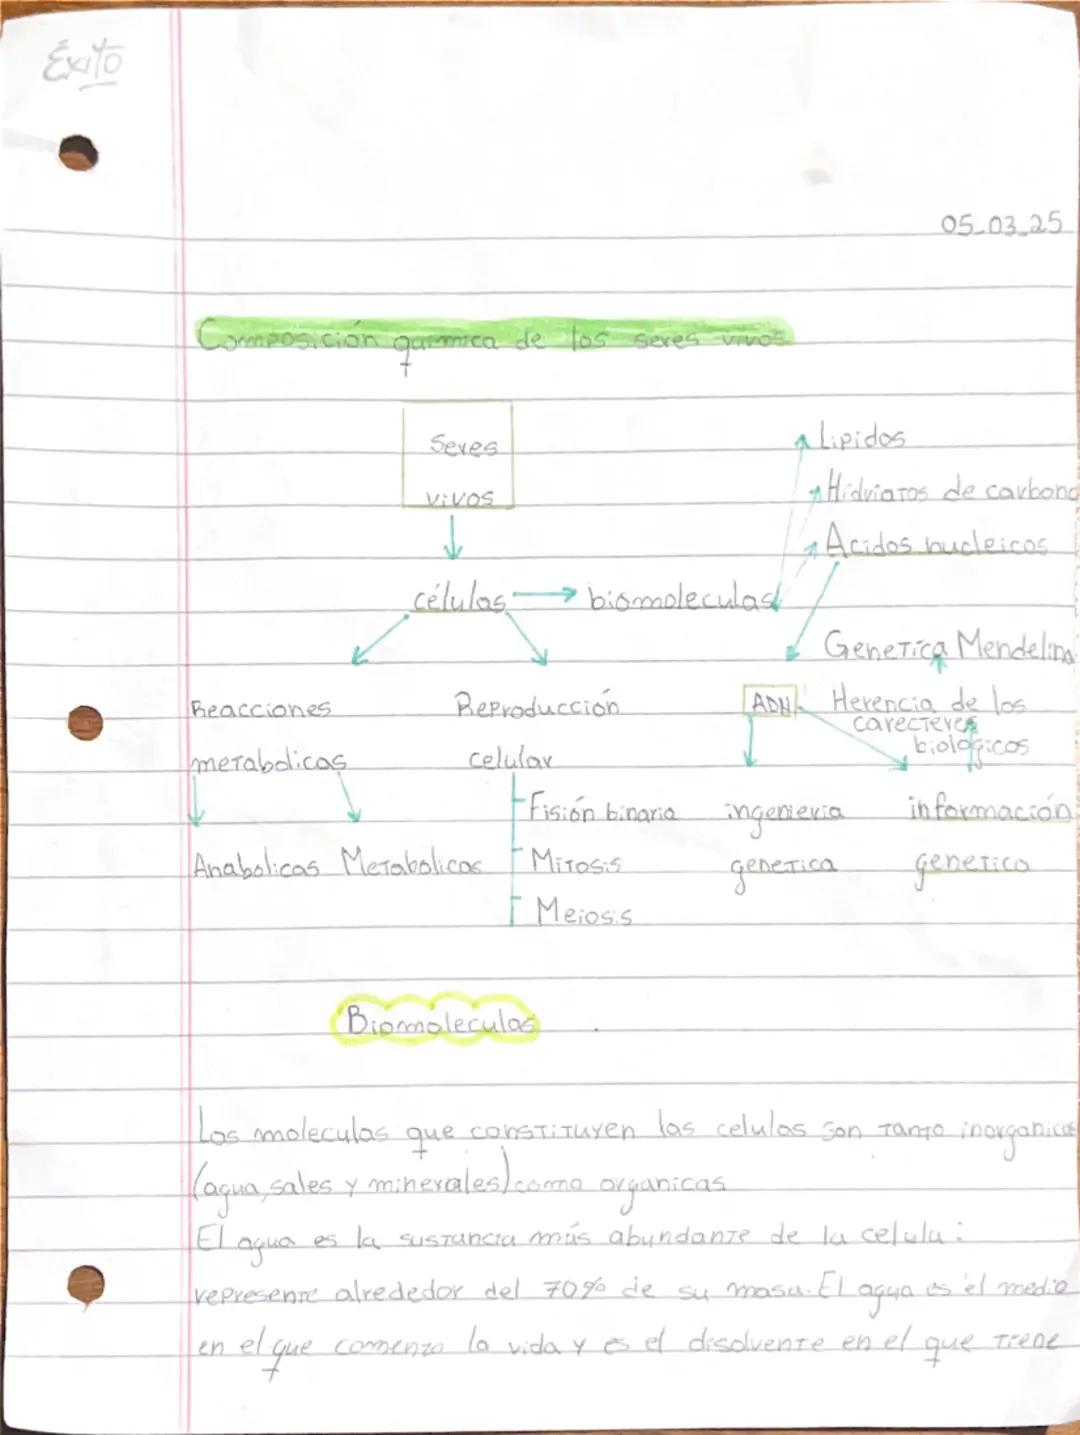 Éxito
05-03-25
Composición quimica de los seres vivos
Seres
vivos
Lipidos
Hidriatos de carbono
Acidos nucleicos
células
biomoleculas
Genetica Mendelina
Reacciones
metabolicas
Reproducción
celular
ADN
Herencia de los
carecteres
biologicos
Fisión binaria
ingenieria
información
Anabolicas Metabolicas
Mitosis
genetica
genetica
Meiosis
Biomoleculas
Las moleculas que constituyen las celulas son tanto inorganicas
(agua, sales y minerales) como organicas
El agua es la sustancia más abundante de la celula:
represente alrededor del 70% de su masa. El agua es el medio
en el que comenzo la vida y es el disolvente en el que tiene